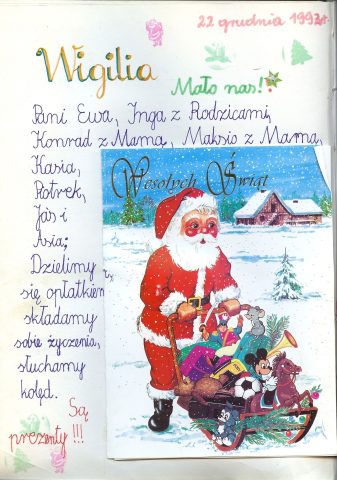 22 grudnia 1993r.
Wigilia
Mało nas!
Pani Ewa, Inga z Rodzicami,
Konrad z Mamą, Maksio z Mamą,
Kasia,
Piotrek,
Jaś i
Asia;
Wesołych Świąt
Dzielimy
się opłatkiem,
składamy
sobie życzenia,
słuchamy
kolęd.
Są
prezenty!!!